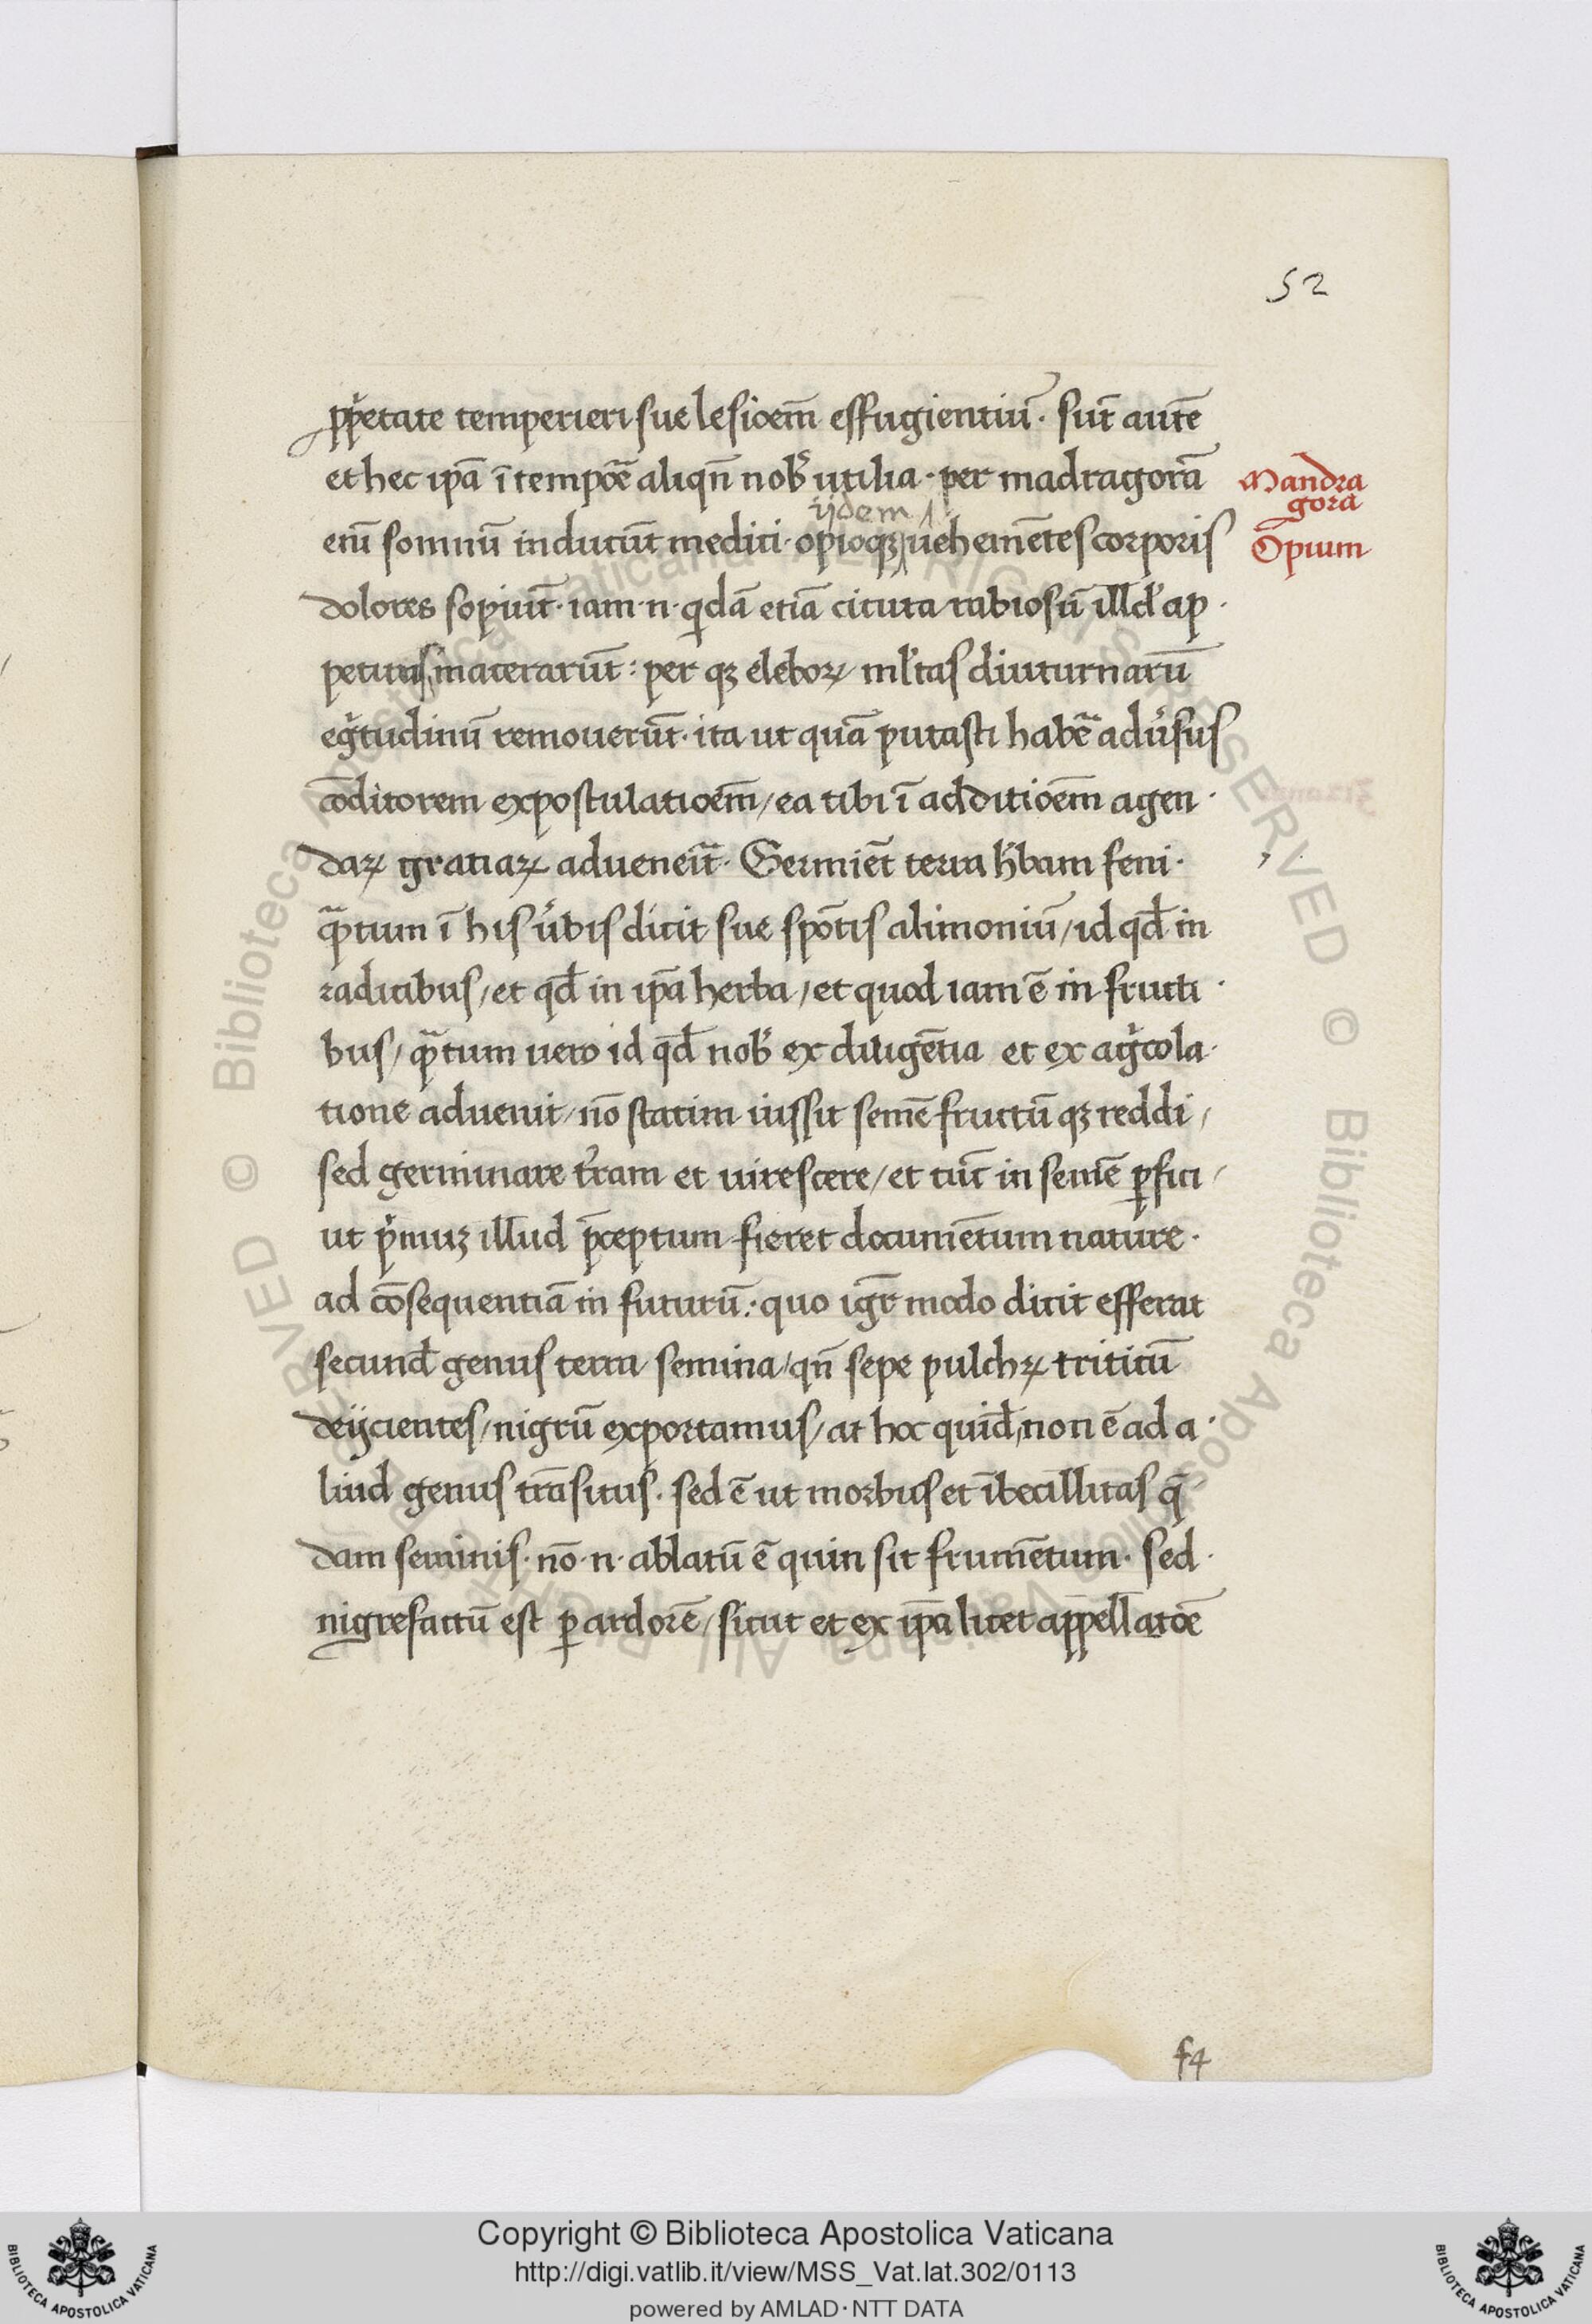 52
ꝓp̾etate temperieri sue lesioem̄ effugientiū· sūt autē
et hec ip̄a ī temp̄oē aliqn̄ nob̾ utilia · per madragorā
Mandra
gora
ijdem
eni̅ somnū inducūt medici · opioqꝫ uehemētes corporis
Opium
dolores sopiūt · iam · n · q̾dā etiā cicuta rabiosū illd̾ ap ·
petus macerarūt : per qꝫ eleboꝝ ml̾tas diuturnarū
eg̾tudinū remouerūt · ita ut quā putasti habē adu̾sus
cōditorem expostulatioem̄ / ea tibi ī additiōem agen ·
daꝝ gratiaꝝ adueneīt · Germiēt terra h̾bam feni ·
qᷓtum ī his u̾bis dicit sue spōtis alimoniū / id qd̄ in
radicibus / et qd̄ in ip̄a herba / et quod iam ē in fructi ·
bus / qᷓtum uero id qd̄ nob̾ ex diligētia et ex ag̾cola ·
tione aduenit / nō statim iussit semē fructū qꝫ reddi /
sed germinare t̾ram et uirescere / et tūc in semē ꝑfici /
ut p̾muꝫ illud p̄ceptum fieret documētum nature ·
ad cōsequentiā in futurū : quo igr̄ modo dicit efferat
secund̄ genus terra semina / qn̄ sepe pulchꝝ triticū
deijcientes / nigrū exportamus / at hoc quid̄ non ē ad a ·
liud genus trāsitus · sed ē ut morbus et ībecillitas q̄
dam seminis · nō · n · ablatū ē quin sit frumētum · sed ·
nigrefactū est ꝑ ardorē / sicut et ex ip̄a licet appellatōe
f4
Copyright © Biblioteca Apostolica Vaticana
http://digi.vatlib.it/view/MSS_Vat.lat.302/0113
powered by AMLAD · NTT DATA